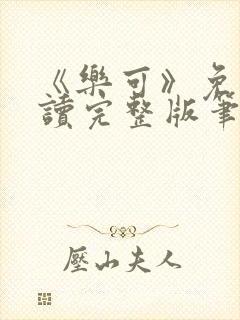 《樂可》免
讀完整版筆
壓山夫人